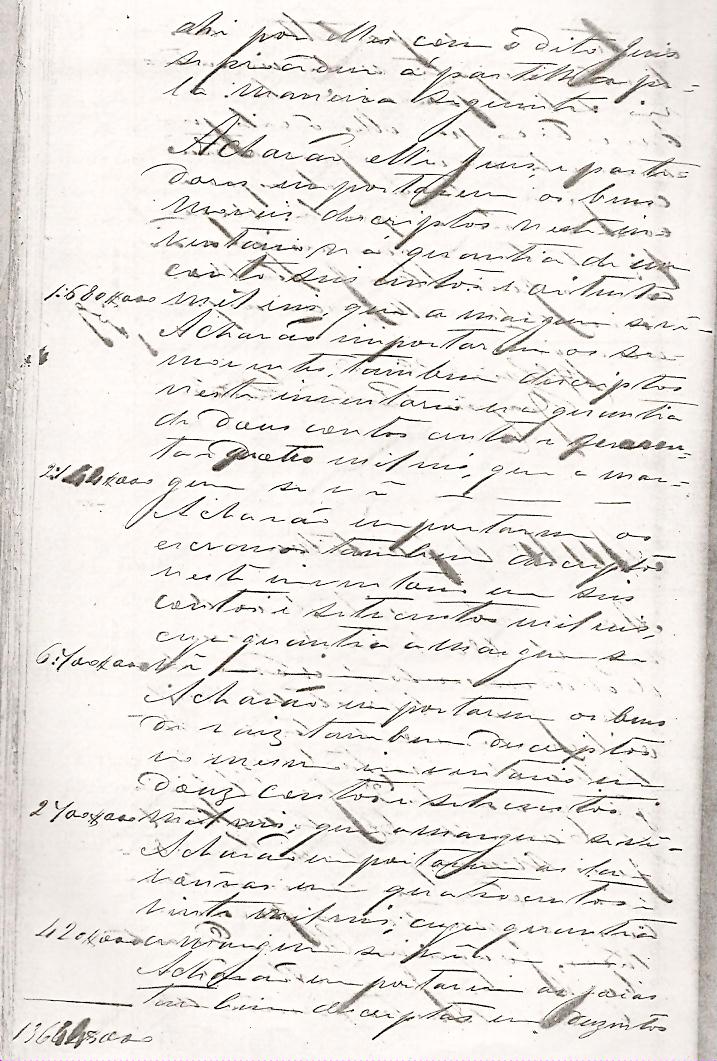 ahi por elles com o dito Juis
se procedeu á partilha pe-
la maneira seguinte:
Acharão elle Juis, e parti-
dores importarem os bens
moveis descriptos neste in-
ventario n'a quantia de um
conto seis centos e oitenta
1:680#000 mil reis, que a margem se vê-
Acharão importarem os se-
moventes, tambem descriptos
neste inventario n'a quantia
de dous contos cento e quaren-
ta e quatro mil reis, que a mar-
2:144#000 gem se vê
Acharão importarem os
escravos tambem descriptos
neste inventario em seis
contos e sete centos mil reis,
cuja quantia a margem se
6:700#000 vê
Acharão importarem os bens
de raiz tambem descriptos
no mesmo inventario em
douz contos e sete centos
2700#000 mil reis, que a margem se vê-
Acharão importarem as
em quatro centos e
vinte mil reis, cuja quantia
420#000 a margem se vê
Acharão importarem as
tambem descriptas em duzentos
13644#000